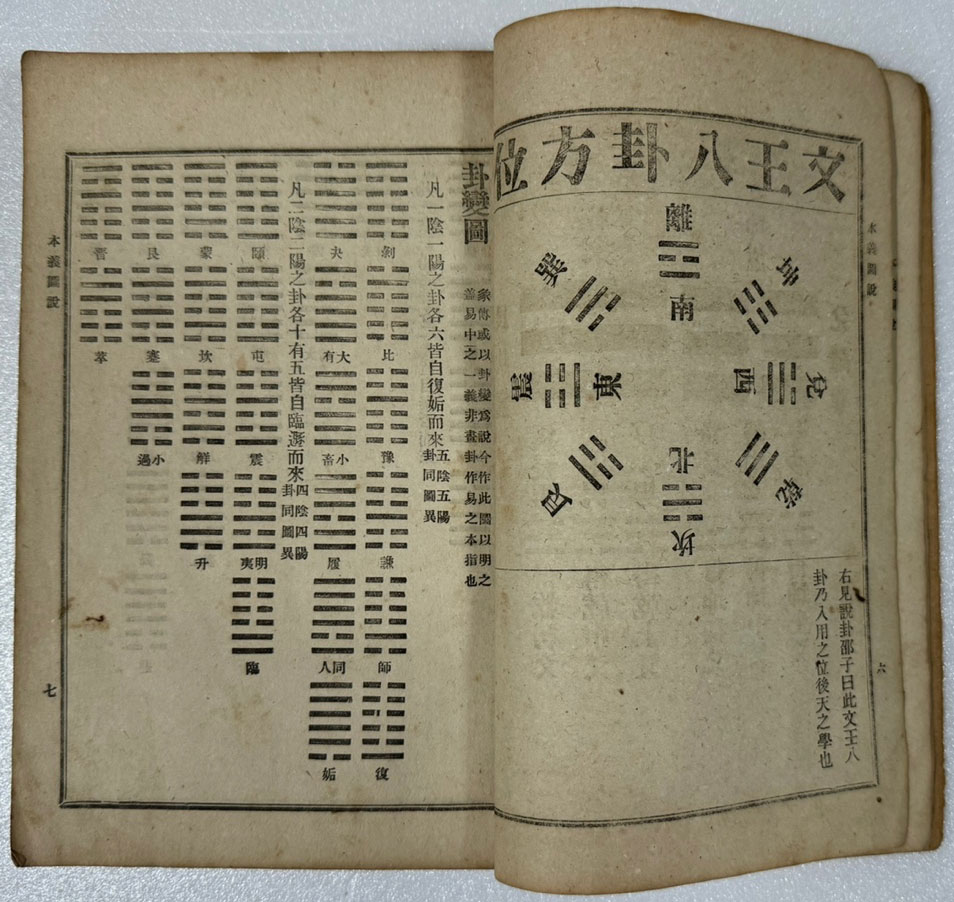 文王八卦方位
離
南
坤
西
兌
乾
北
坎
艮
東
震
巽
右見說卦邵子曰此文王八
卦乃入用之位後天之學也
本義圖說
六
卦變圖
彖傳或以卦變爲說今作此圖以明之
蓋易中之一義非畫卦作易之本指也
凡一陰一陽之卦各六皆自復姤而來
五陰五陽
卦同圖異
剝
比
豫
謙
師
復
夬
大有
小畜
履
同人
姤
凡二陰二陽之卦各十有五皆自臨遯而來
四陰四陽
卦同圖異
頤
屯
震
明夷
臨
蒙
坎
解
升
艮
蹇
小過
晉
萃
本義圖說
七